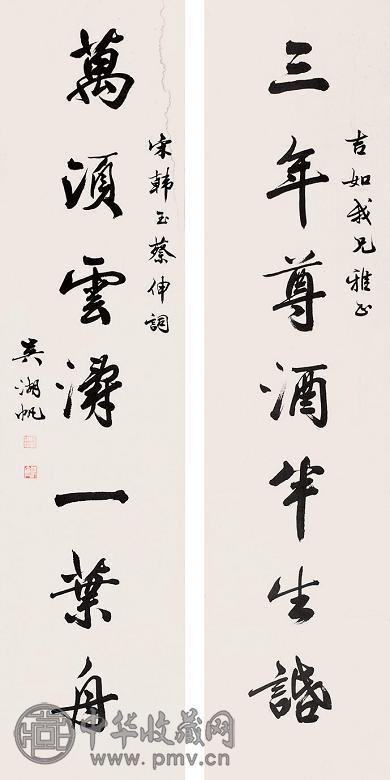 吉如我兄雅正
三年尊酒半生
萬頃雲濤一葉舟
宋韓玉蔡伸詞
吳湖帆
中华收藏网
www.pmv.cn